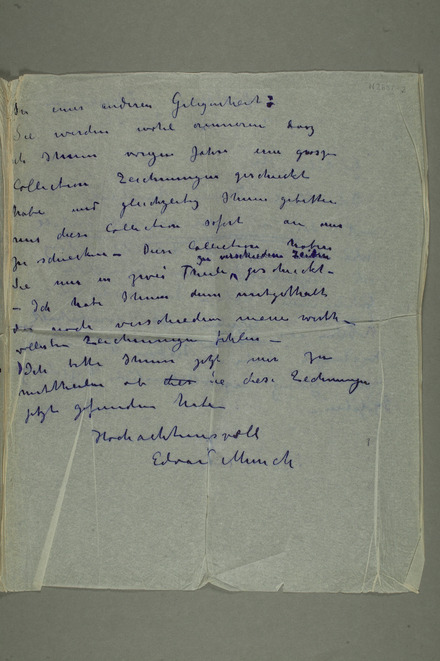 In einer anderen Gelegenheit:
Sie werden wohl erinneren das
ich Ihnen vorigen Jahre eine grosse
Collection Zeichnungen geschickt
habe und gleichzeitig Ihnen gebeten
mir diese Collection sofort an mir
zu schicken – Diese Collection haben
zu verschiedenen Zeiten
Sie mir in zwei Theile geschickt –
– Ich habe Ihnen dann mitgetheilt
das noch verschiedene meine werth–
vollesten Zeichnungen fehlen –
Ich bitte Ihnen jetzt mir zu
mittheilen ob Sie diese Zeichnungen
jetzt gefunden haben
Hochachtungsvoll
Edvard Munch